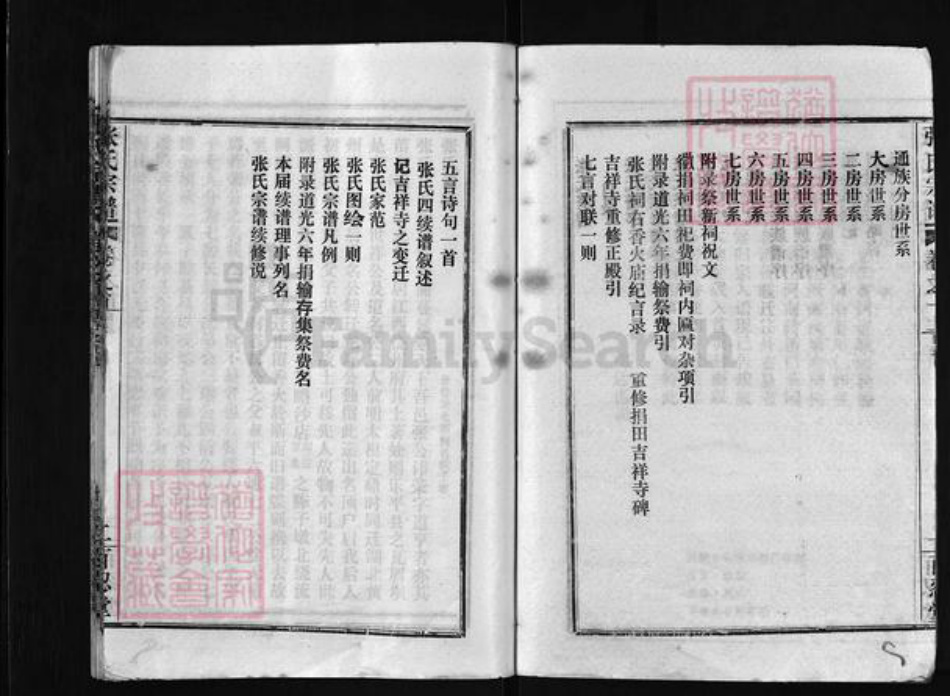 通族分房世系
大房世系
二房世系
三房世系
四房世系
五房世系
六房世系
七房世系
附录祭新祠祝文
徽捐祠田祀费即祠内匾对杂项引
附录道光六年捐输祭费引
张氏祠右香火庙纪言录 重修捐田吉祥寺碑
吉祥寺重修正殿引
七言对联一则
五言诗句一首
张氏四续谱叙述
记吉祥寺之变迁
张氏家范
张氏图绘一则
张氏宗谱凡例
附录道光六年捐输存集祭费名
本届续谱理事列名
张氏宗谱续修说
张氏宗谱
FamilySearch